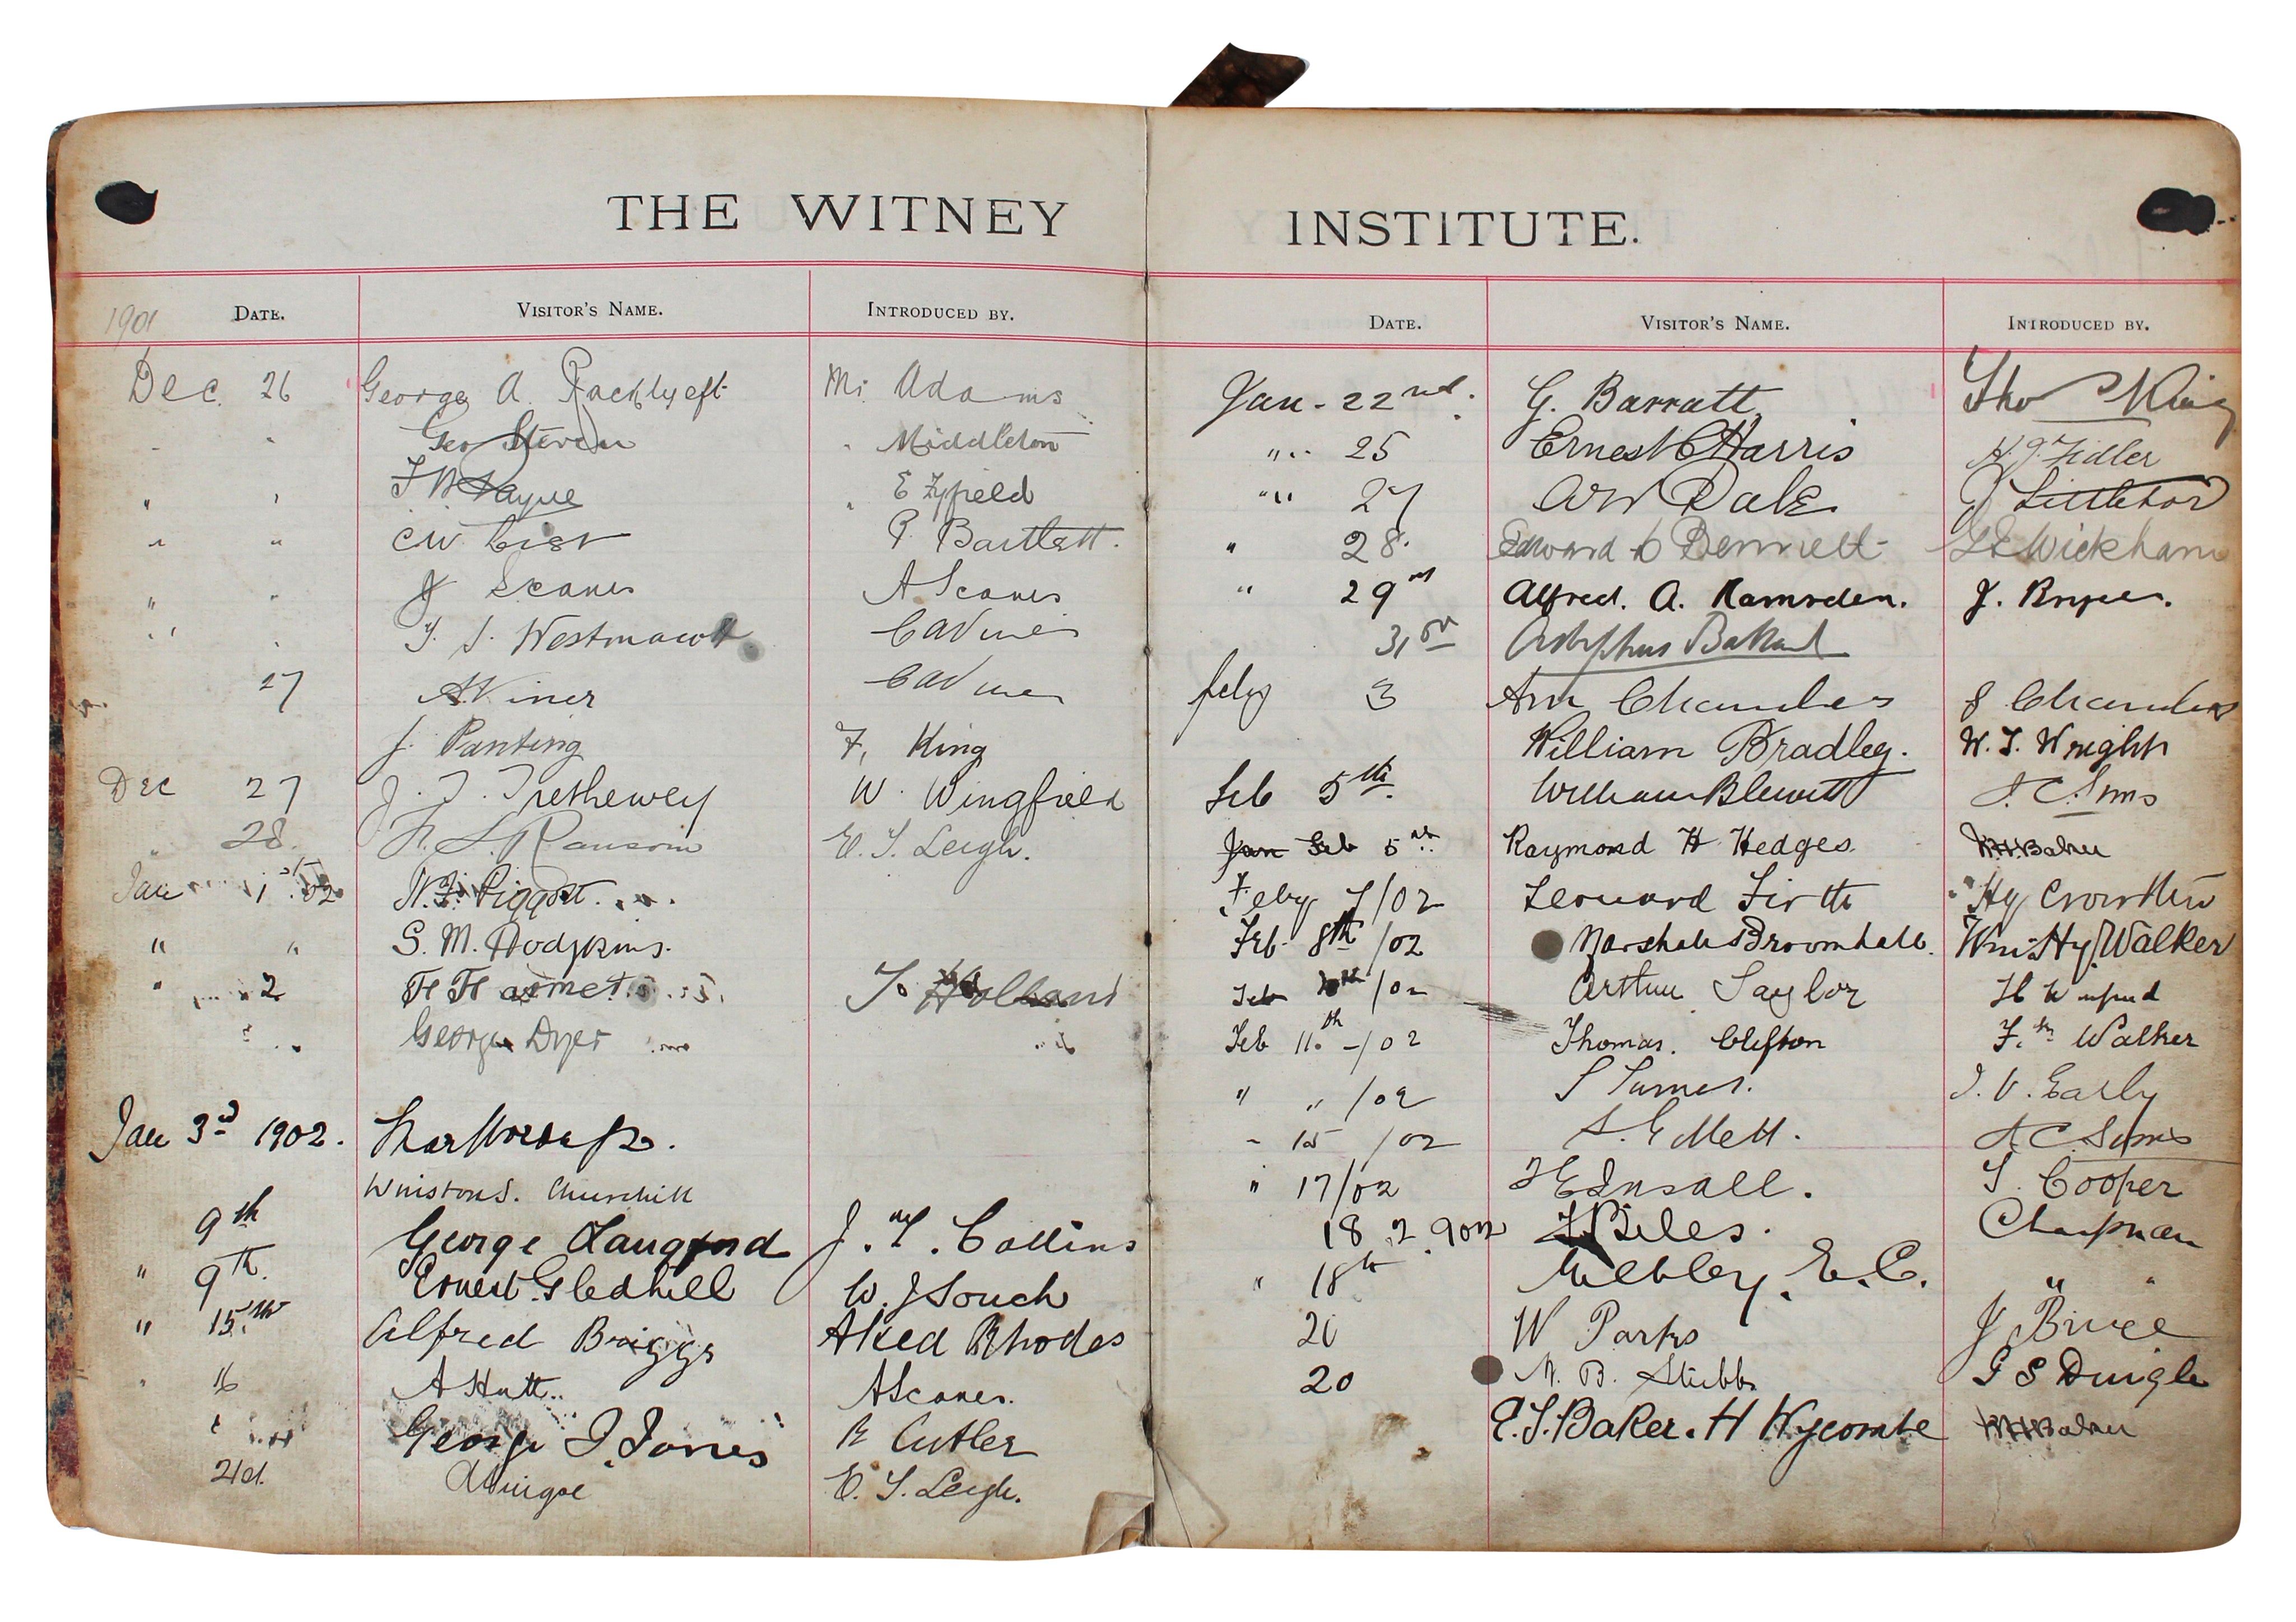 THE WITNEY INSTITUTE.
1901 DATE. VISITOR'S NAME. INTRODUCED BY.
Dec. 26 George A. Mr Adams
" " Geo Steven " Middleton
" " Payne " E Fyfield
" " CW List P. Bartlett.
" " J Scanes A Scanes
" " Westmacott
27 A Viner
J. Panting F. King
Dec 27 J. J. Trethewey W. Wingfield
" 28. Ransom E. T. Leigh.
Jan 1st 02 Piggott.
" " S. M. Hodgkins.
" 2 T. Holland
" " George Dyer "
Jan 3rd 1902.
Winston S. Churchill
9th George Langford Collins
" 9th. Ernest Gledhill W. J Souch
" 15th Alfred Briggs Aked Rhodes
" 16 A Hutt.. A Scanes.
" " George J. Jones R Cutler
21st. E. T. Leigh.
DATE. VISITOR'S NAME. INTRODUCED BY.
Jan - 22nd. G. Barratt. Tho King
" " 25 Ernest C Harris H. J. Fidler
" " 27 AW Dale J Littleton
" 28. Edward Bennett Wickham
" 29 Alfred. A. Ramsden. J. Bryer.
31st Ballard
feby 3 Chambers Chambers
William Bradley. W. T. Wright
Feb 5th. William Blewitt C. Sims
Jan Feb 5 Raymond H Hedges. Baker
Feby 7/02 Leonard Firth Hy Crowther
Feb. 8th /02 Marshall Broomhall. Wm. Hy. Walker
Feb /02 Arthur Taylor
Feb 11th -/02 Thomas. Clifton Walker
" " /02 S Turner. J. V. Early
" 15 /02 C Sims
" 17/02 Insall. T. Cooper
18. 2. 902 Biles. Chapman
" 18th E. C. " "
20 W Parks J Bruce
20 N. B. Stubbs
E. T. Baker. H Wycombe Baker